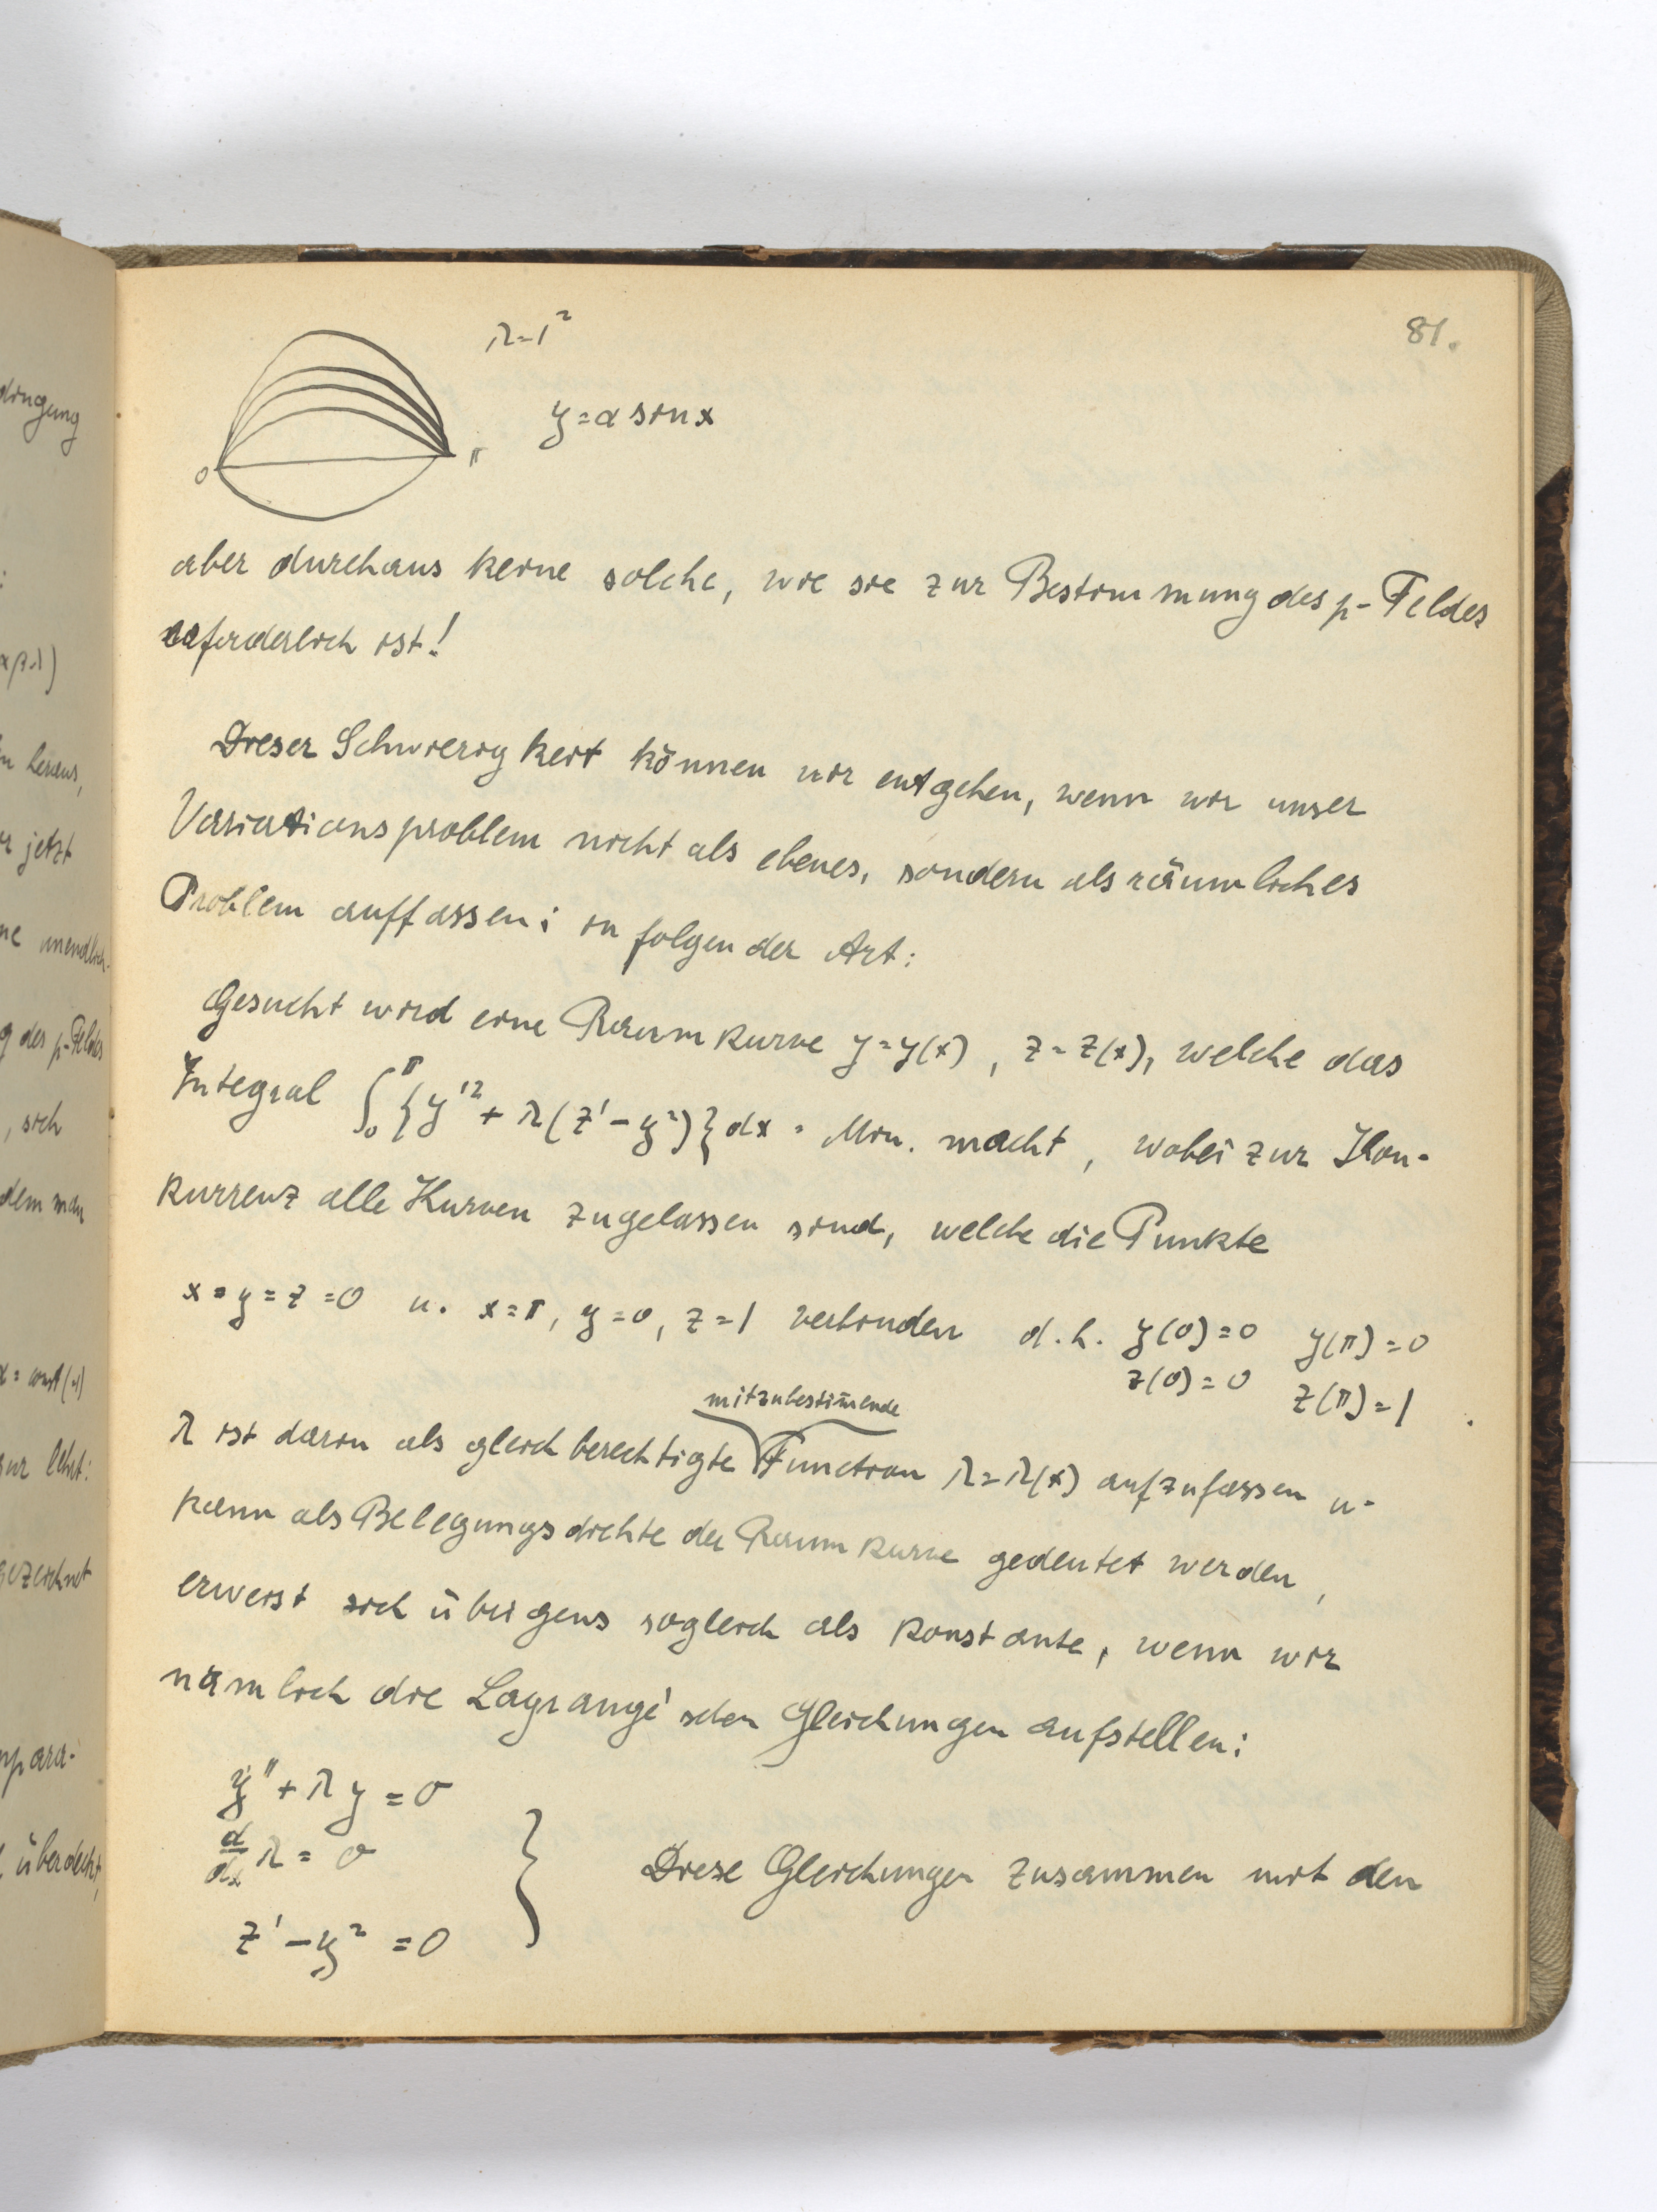 81.
λ=1²
y=α sin x
0
π
aber durchaus keine solche, wie sie zur Bestimmung des p-Feldes
erforderlich ist!
Dieser Schwierigkeit können wir entgehen, wenn wir unser
Variationsproblem nicht als ebenes, sondern als räumliches
Problem auffassen; in folgender Art:
Gesucht wird eine Raumkurve y=y(x), z=z(x), welche das
Integral ∫₀^π {y'² + λ(z' − y²)} dx = Min. macht, wobei zur Kon-
kurrenz alle Kurven zugelassen sind, welche die Punkte
x=y=z=0 u. x=π, y=0, z=1 verbinden d.h. y(0)=0 y(π)=0
z(0)=0 z(π)=1.
mitzubestim̄ende
λ ist darin als gleichberechtigte Function λ=λ(x) aufzufassen u.
kann als Belegungsdichte der Raumkurve gedeutet werden,
erweist sich übrigens sogleich als Konstante, wenn wir
nämlich die Lagrange'schen Gleichungen aufstellen:
y'' + λy = 0
d/dx λ = 0
z' − y² = 0
} Diese Gleichungen zusammen mit den
dingung
:
αβλ)
heraus,
jetzt
ne unendlich-
g des p-Feldes
, sich
dem man
zur lehrt:
gezeichnet
para-
überdeckt,